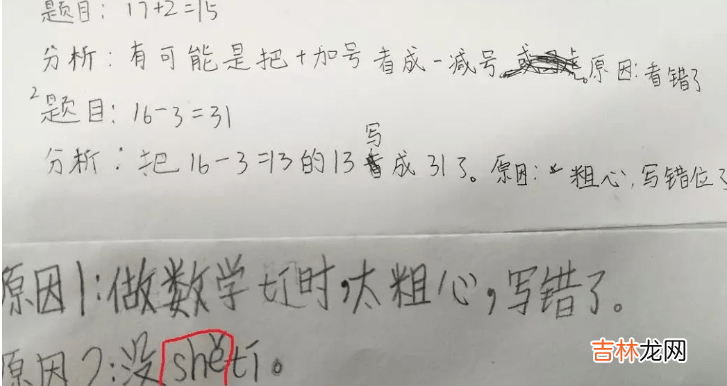 题目: 17+2=15
分析: 有可能是把+加号看成-减号。原因:看错了
2 题目: 16-3=31
分析: 把16-3=13的13写成31了。原因: 粗心,写错位了
原因1:做数学 时,太粗心,写错了。
原因2:没shětí。
吉林龙网